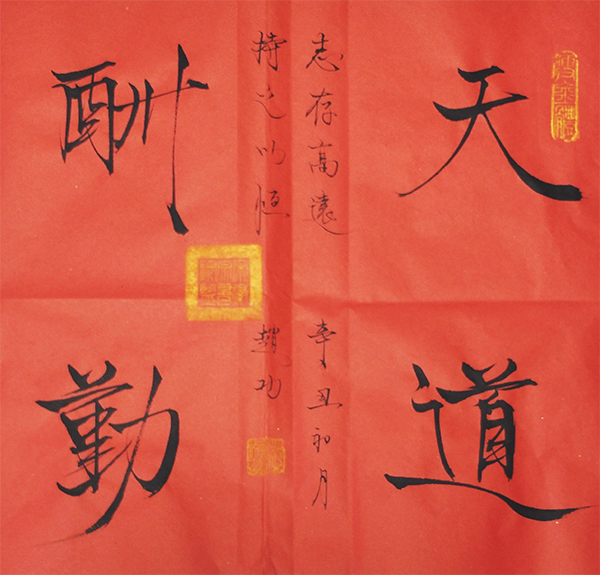 天道
酬勤
志存高遠
持之以恆
辛丑初月
趙功